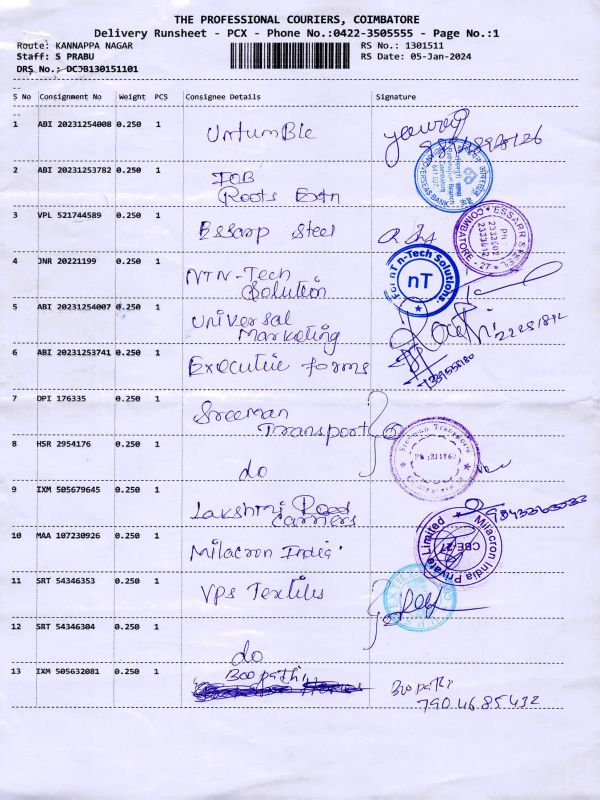 THE PROFESSIONAL COURIERS, COIMBATORE
Delivery Runsheet - PCX - Phone No.:0422-3505555 - Page No.:1
Route: KANNAPPA NAGAR RS No.: 1301511
Staff: S PRABU RS Date: 05-Jan-2024
DRS No.: DCJB130151101
S No Consignment No Weight PCS Consignee Details Signature
1 ABI 20231254008 0.250 1 UnTumBle
2 ABI 20231253782 0.250 1 IOB
Roots Extn
3 VPL 521744589 0.250 1 Essarp Steel
ESSARR STEEL
COIMBATORE - 27
4 JNR 20221199 0.250 1 NTN-Tech
Solution
For nT n-Tech Solutions.
nT
5 ABI 20231254007 0.250 1 Universal
Marketing
6 ABI 20231253741 0.250 1 Executive forms
7 DPI 176335 0.250 1 Sreeman
Transport
8 HSR 2954176 0.250 1 do
9 IXM 505679645 0.250 1 Lakshmi Road
Carriers
10 MAA 107230926 0.250 1 Milacron India
Milacron India Private Limited
CBE-27
11 SRT 54346353 0.250 1 VPS Textiles
12 SRT 54346304 0.250 1 do
13 IXM 505632081 0.250 1 Boopathi Boopathi
7904685432